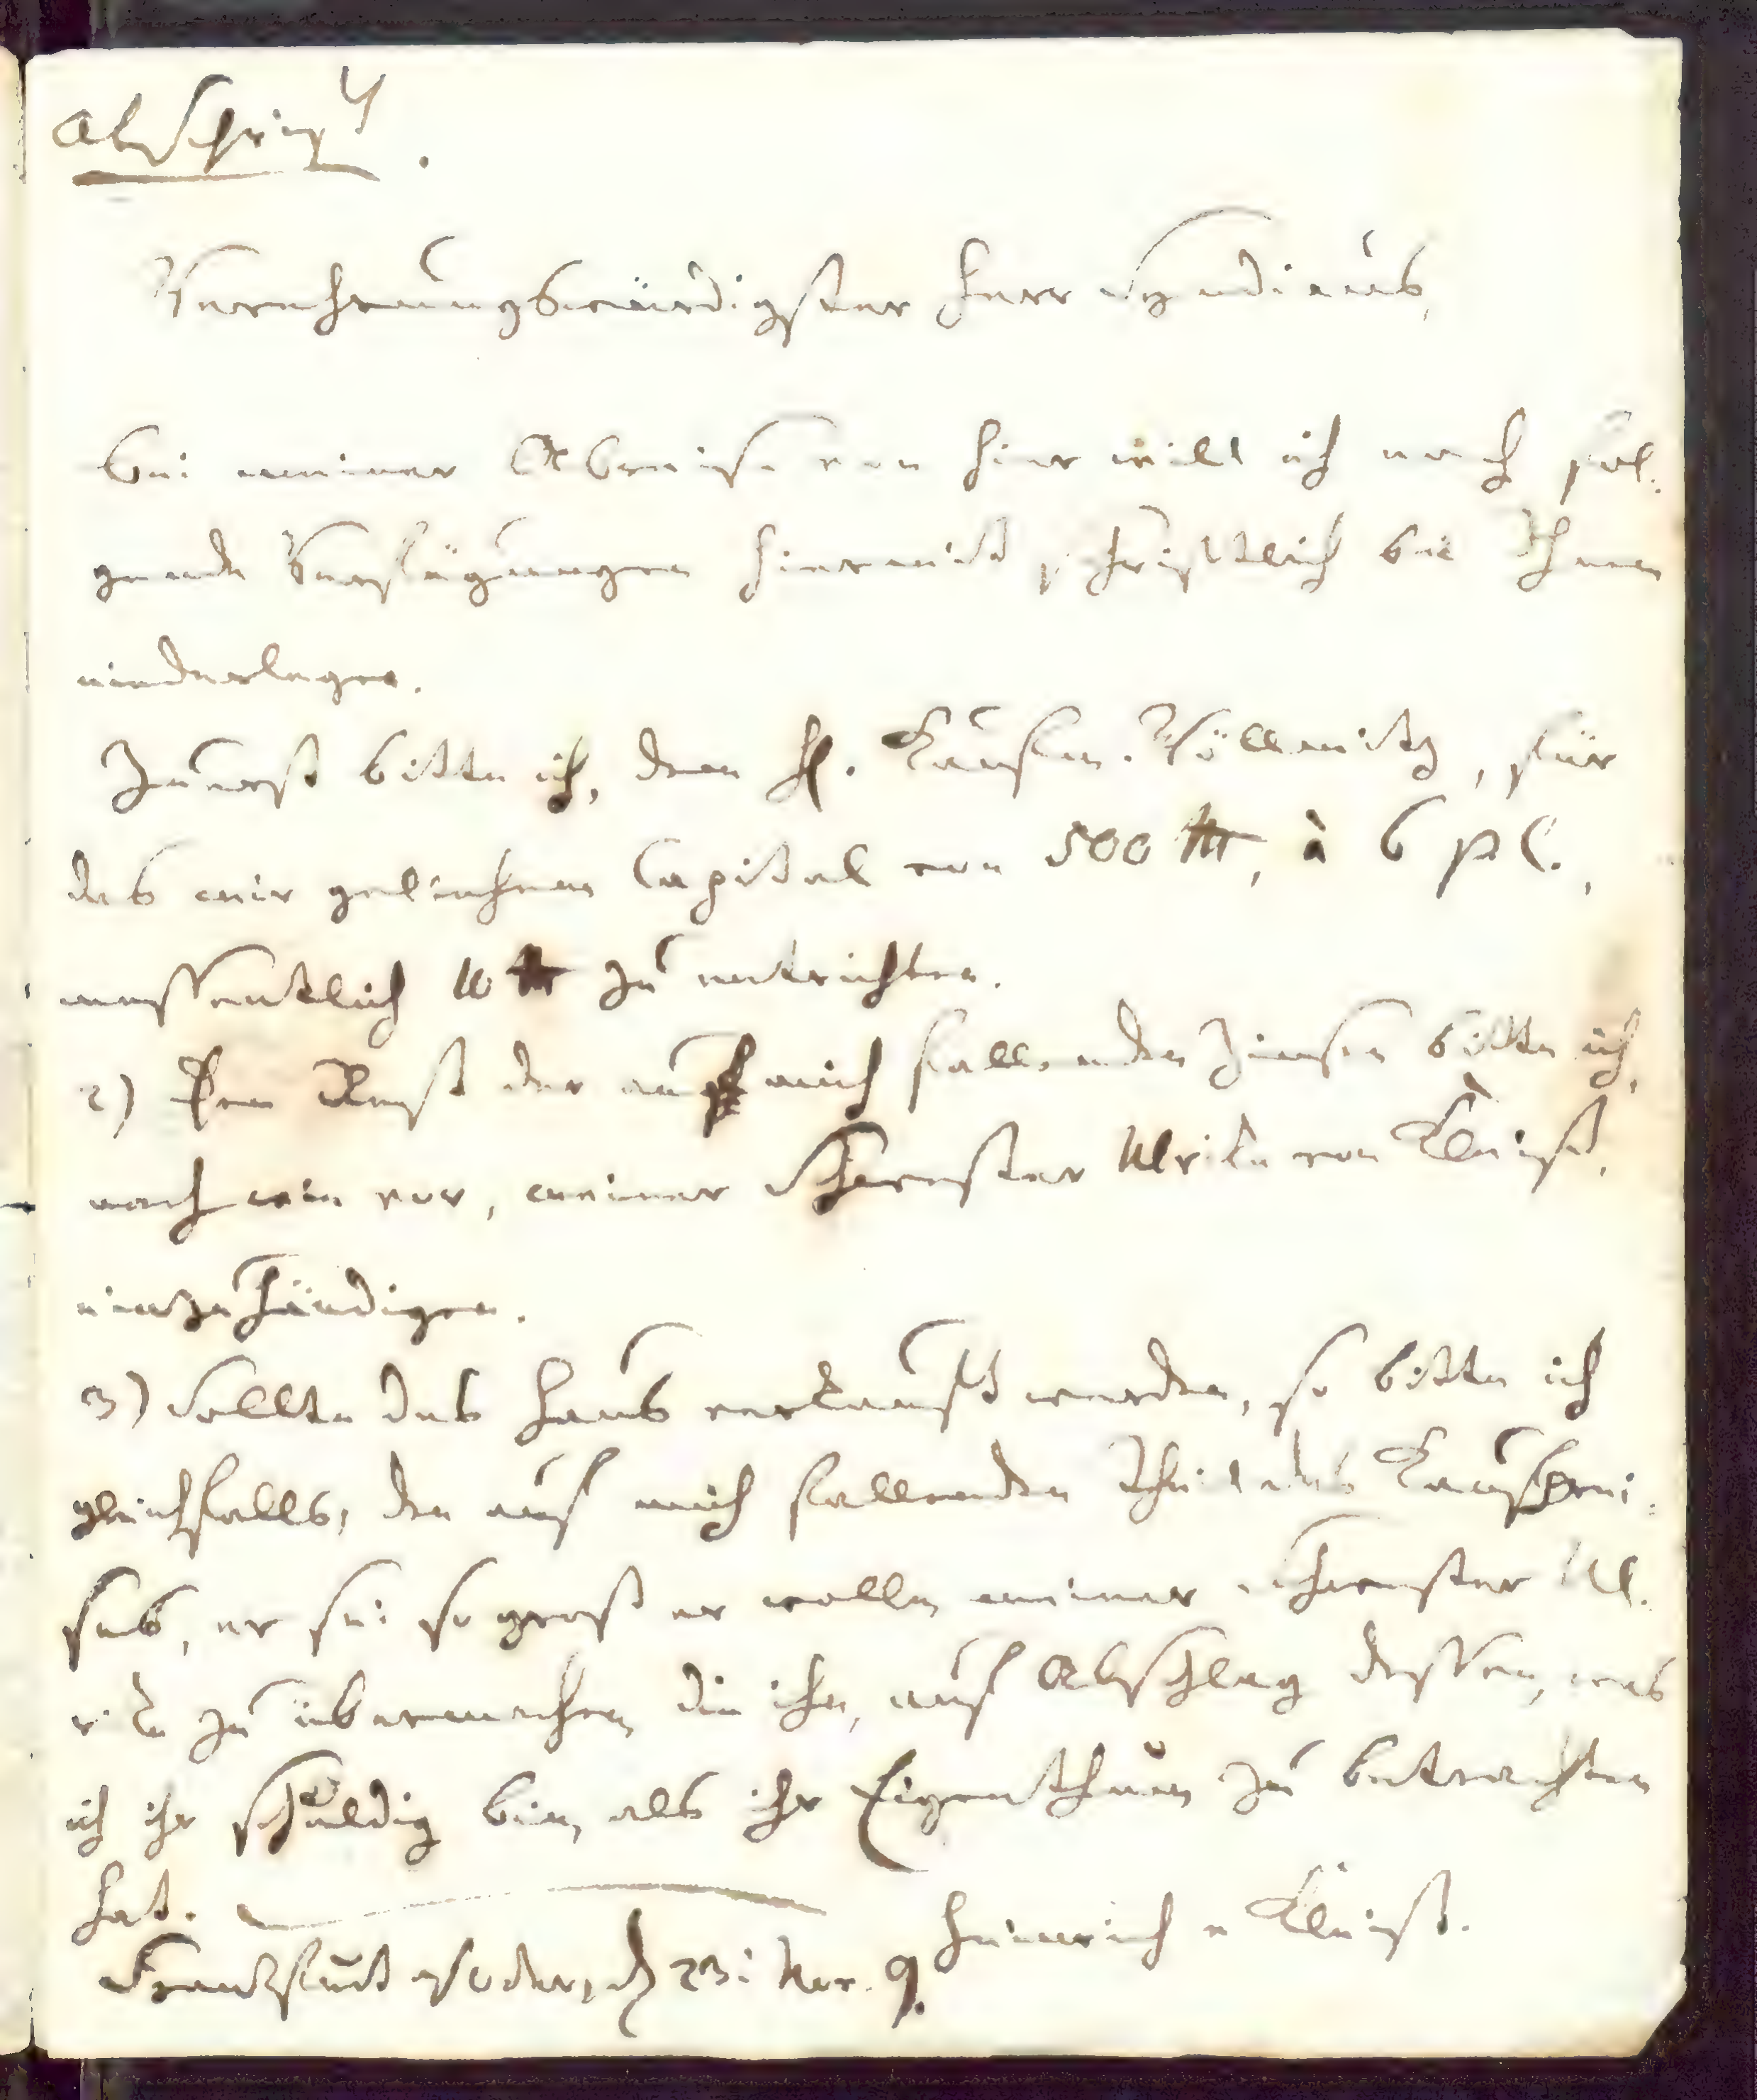 Abschrift.
Verehrungswürdigster Herr Syndicus,
bei meiner Abreise von hier will ich noch fol-
gende Verfügungen hiermit schriftlich bei Ihnen
niederlegen.
Zuerst bitte ich, dem H. Kaufm. Wöllmitz, für
das mir geliehene Capital von 500 Rth, à 6 p C.,
wessentlich 10 Rth zu entrichten.
2) Den Rest der auf mich fallenden Zinsen bitte ich,
nach wie vor, meiner Schwester Ulrike von Kleist,
einzuhändigen.
3) Sollte das Haus verkauft werden, so bitte ich
gleichfalls, den auf mich fallenden Theil des Kaufprei-
ses, er sei so groß er wolle, meiner Schwester Ul-
rike zu übermachen, die ihn, auf Abschlag dessen, was
ich ihr schuldig bin, als ihr Eigenthum zu betrachten
hat. Heinrich v Kleist.
Frankfurt a/Oder, d 23t Nov. 9.